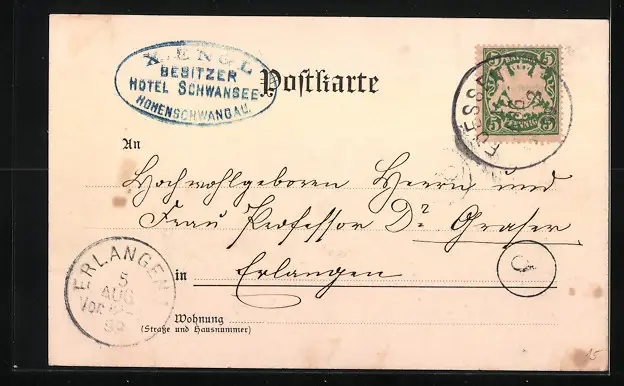 X. ENGL
BESITZER
HOTEL SCHWANSEE
HOHENSCHWANGAU.
Postkarte
5 5
PFENNIG
5 5
FUESSE
An
Hochwohlgeboren Herrn und
Frau Professor Dr. Graser
in Erlangen
ERLANGEN
5
AUG
Vor
99
Wohnung
(Straße und Hausnummer)
15